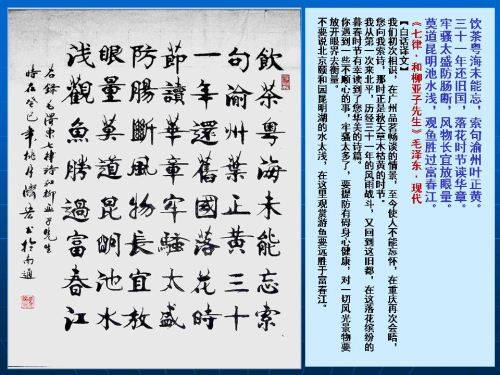 饮茶粤海未能忘，索句渝州叶正黄。
三十一年还旧国，落花时节读华章。
牢骚太盛防肠断，风物长宜放眼量。
莫道昆明池水浅，观鱼胜过富春江。
《七律·和柳亚子先生》毛泽东·现代
【白话译文】
我们初次相识，在广州品茗畅谈的情景，至今使人不能忘怀，在重庆再次会晤，
您向我索诗，那时正是秋天草木枯黄的时节。
我从第一次来北平，历经三十一年的风雨战斗，又回到这旧都，在这落花缤纷的
暮春时节有幸读到了您华美的诗篇。
你遇到一些不顺心的事，牢骚太多了，要提防有碍身心健康，对一切风光景物要
放开眼界去衡量。
不要说北京颐和园昆明湖的水太浅，在这里观赏游鱼要远胜于富春江。
飲茶粤海未能忘索
句渝州葉正黄三十
一年還舊國落花時
節讀華章牢騷太盛
防腸斷風物長宜放
眼量莫道昆明池水
浅觀魚勝過富春江
右錄毛澤東七律和柳亞子先生
時在癸巳年桃月书於南通